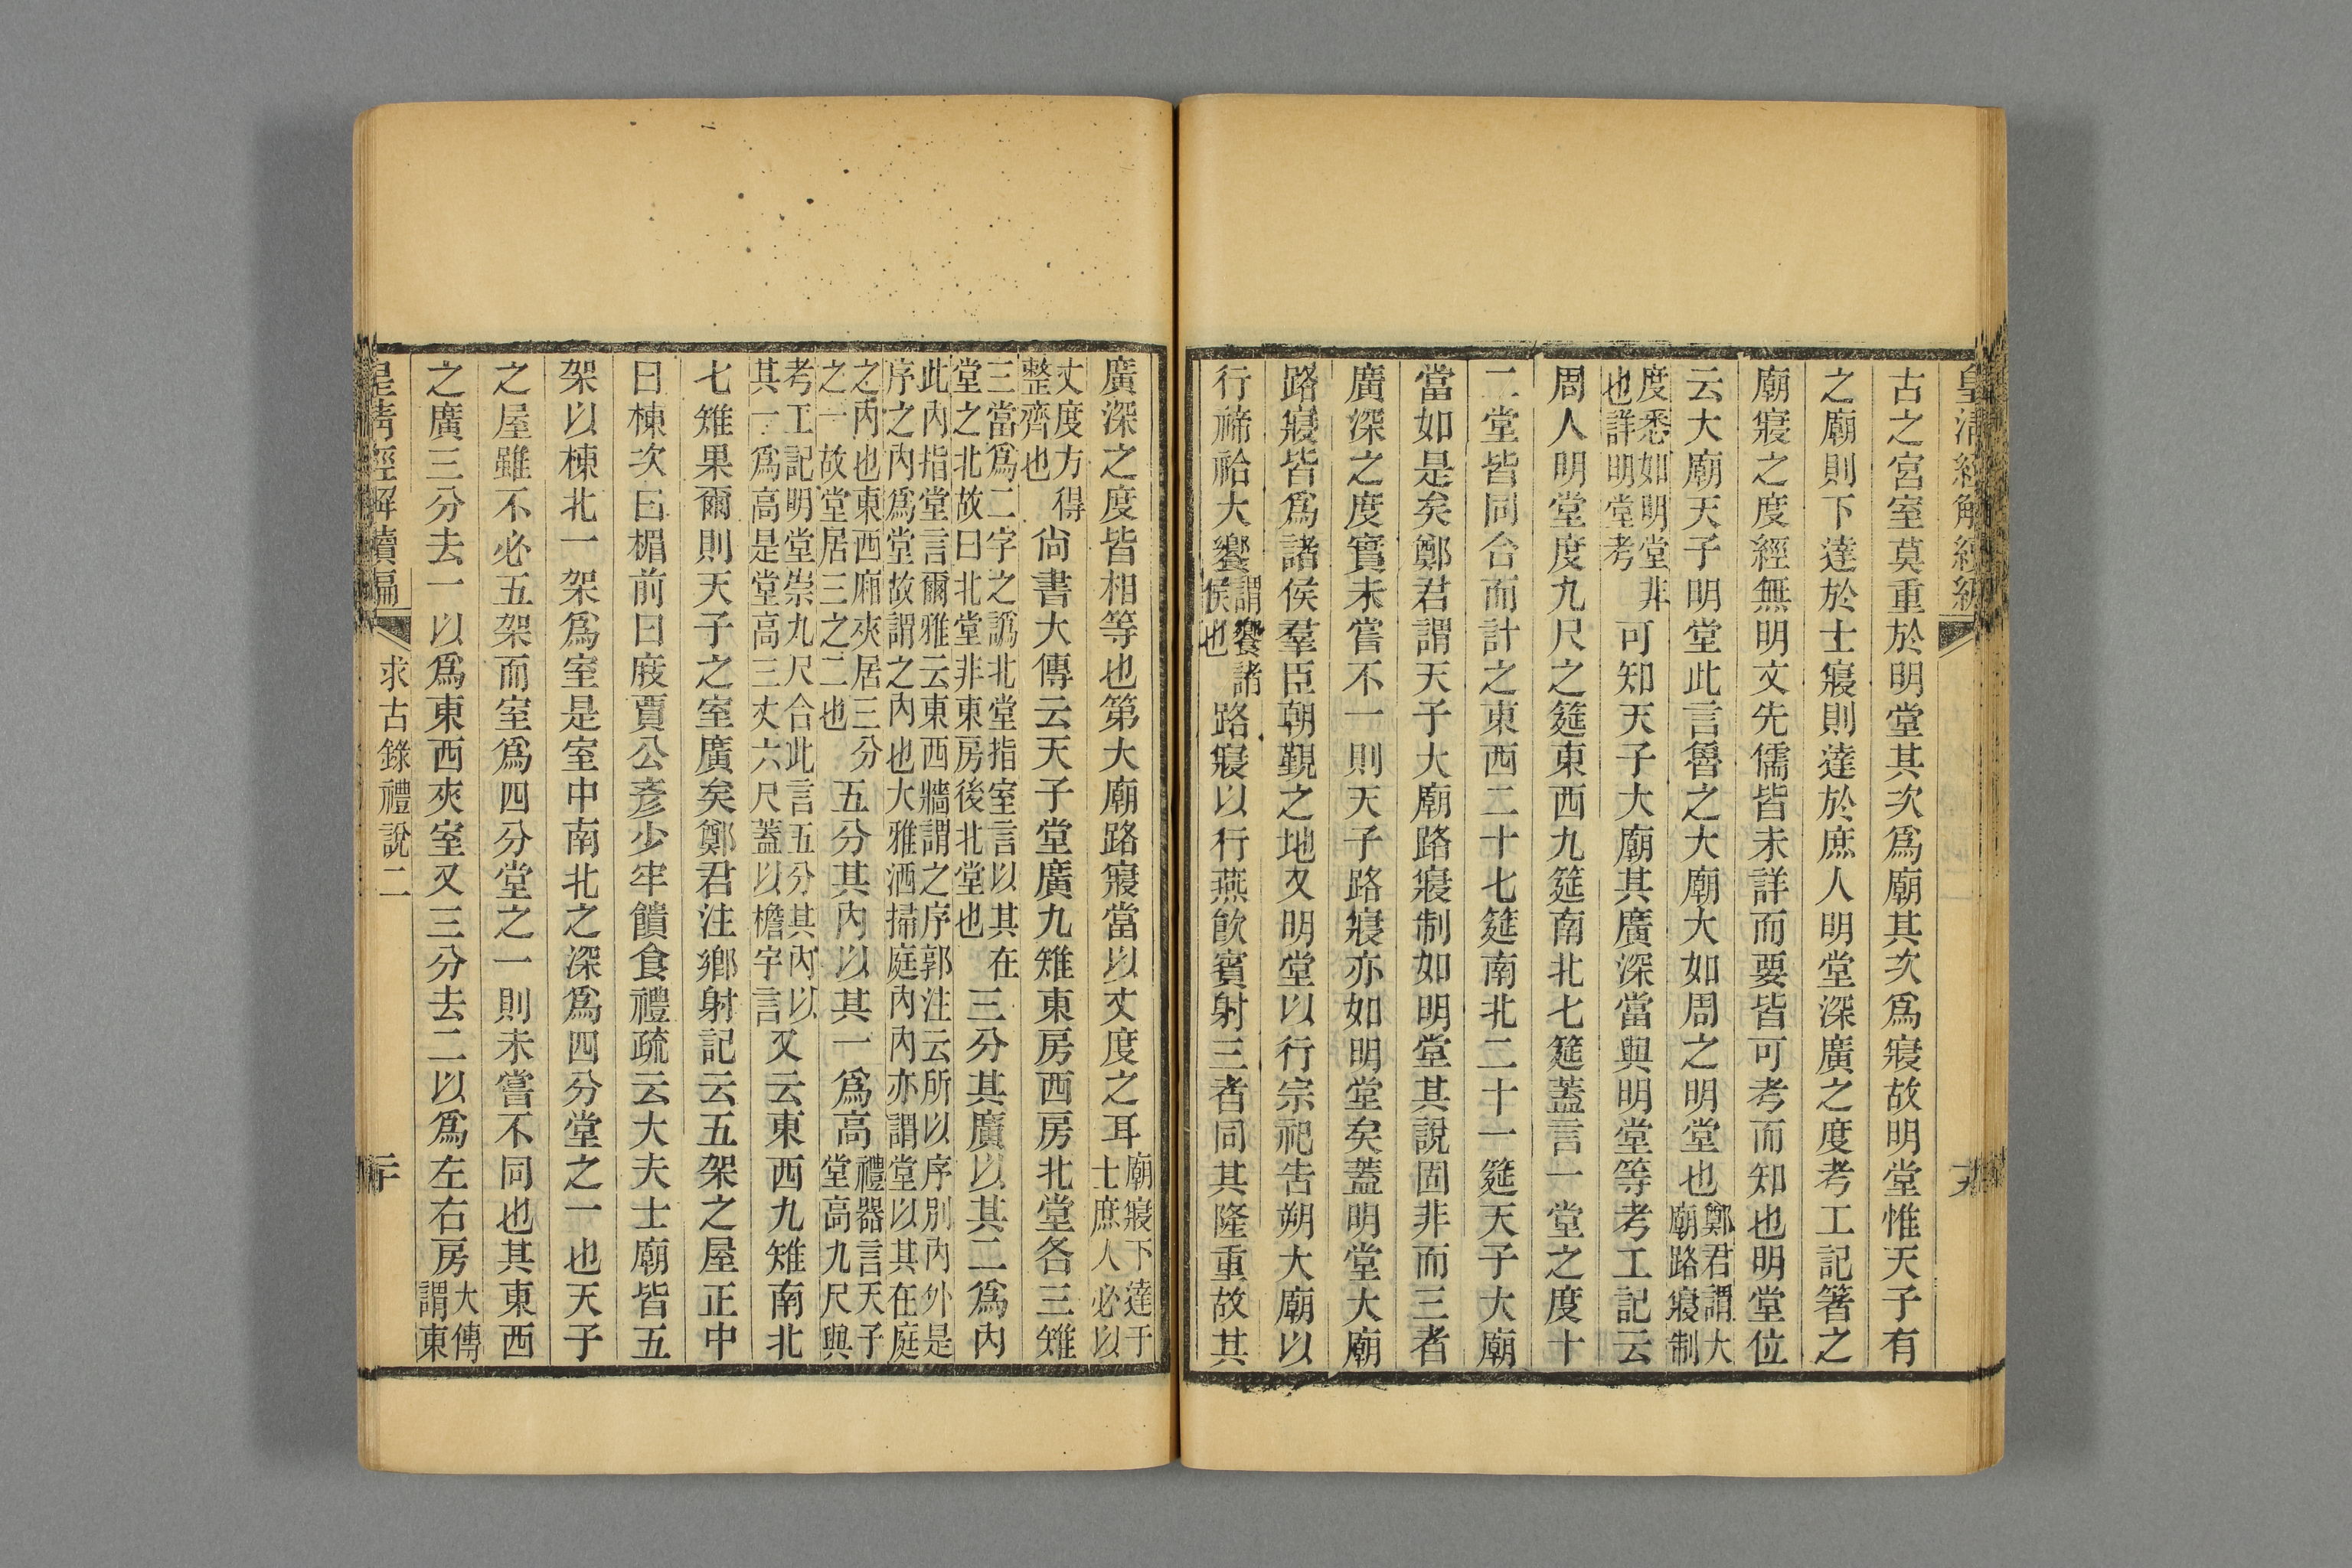 皇清經解續編
十九
古之宮室莫重於明堂其次爲廟其次爲寢故明堂惟天子有
之廟則下達於士寢則達於庶人明堂深廣之度考工記箸之
廟寢之度經無明文先儒皆未詳而要皆可考而知也明堂位
云大廟天子明堂此言魯之大廟大如周之明堂也鄭君謂大廟路寢制
度悉如明堂非也詳明堂考可知天子大廟其廣深當與明堂等考工記云
周人明堂度九尺之筵東西九筵南北七筵蓋言一堂之度十
二堂皆同合而計之東西二十七筵南北二十一筵天子大廟
當如是矣鄭君謂天子大廟路寢制如明堂其說固非而三者
廣深之度實未嘗不一則天子路寢亦如明堂矣蓋明堂大廟
路寢皆爲諸侯羣臣朝覲之地又明堂以行宗祀告朔大廟以
行禘祫大饗謂饗諸侯也路寢以行燕飲賓射三者同其隆重故其
廣深之度皆相等也第大廟路寢當以丈度之耳廟寢下達于士庶人必以
丈度方得整齊也尙書大傳云天子堂廣九雉東房西房北堂各三雉
三當爲二字之譌北堂指室言以其在堂之北故曰北堂非東房後北堂也三分其廣以其二爲內
此內指堂言爾雅云東西牆謂之序郭注云所以序別內外是序之內爲堂故謂之內也大雅洒掃庭內內亦謂堂以其在庭
之內也東西廂夾居三分之一故堂居三之二也五分其內以其一爲高禮器言天子堂高九尺與
考工記明堂崇九尺合此言五分其內以其一爲高是堂高三丈六尺蓋以檐宇言又云東西九雉南北
七雉果爾則天子之室廣矣鄭君注鄕射記云五架之屋正中
曰棟次曰楣前曰庪賈公彥少牢饋食禮疏云大夫士廟皆五
架以棟北一架爲室是室中南北之深爲四分堂之一也天子
之屋雖不必五架而室爲四分堂之一則未嘗不同也其東西
之廣三分去一以爲東西夾室又三分去二以爲左右房大傳謂東
皇清經解續編
求古錄禮說二
二十